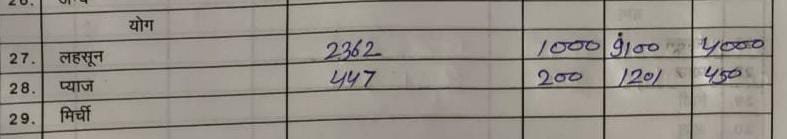 योग
27. लहसून 2362 1000 9100 4000
28. प्याज 447 200 1201 450
29. मिर्ची